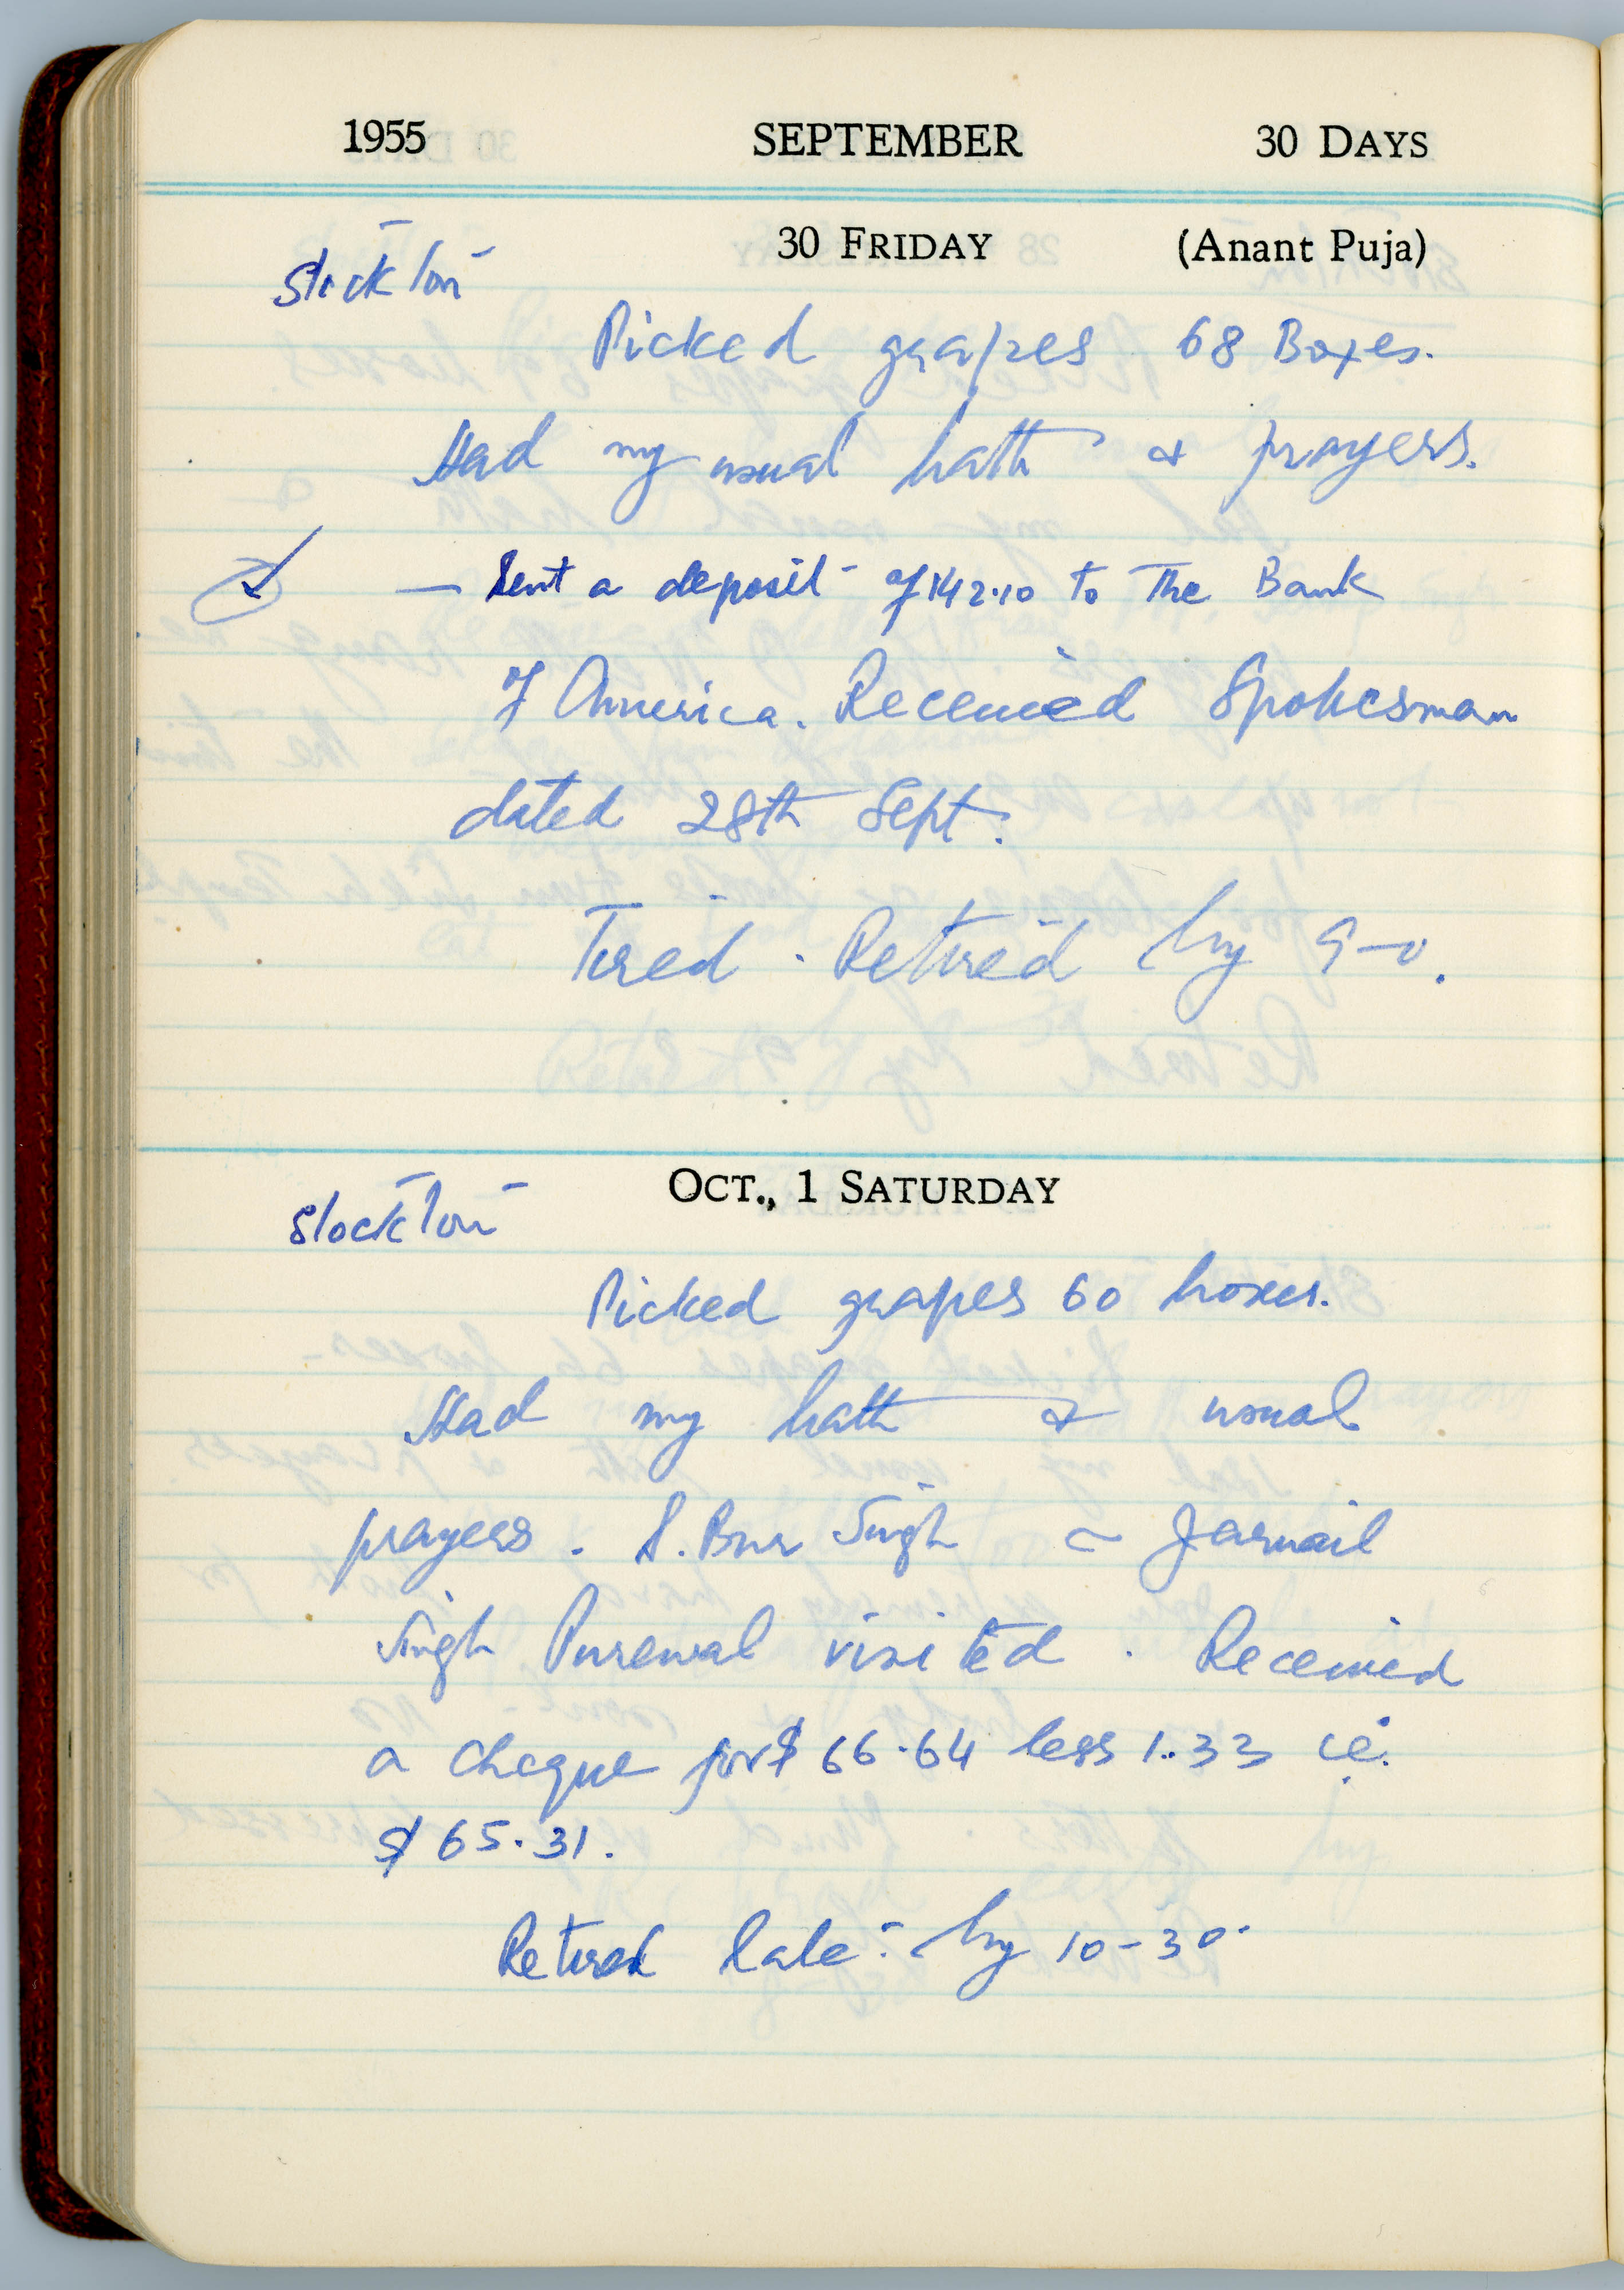 1955 SEPTEMBER 30 DAYS
30 FRIDAY (Anant Puja)
Stockton
Picked grapes 68 Boxes.
Had my usual bath & prayers.
— Sent a deposit of 142.10 to the Bank
of America. Received Spokesman
dated 28th Sept.
Tired. Retired by 9-0.
OCT., 1 SATURDAY
Stockton
Picked grapes 60 boxes.
Had my bath & usual
prayers. S. Singh Jarnail
Singh Purewal visited. Received
a cheque for $ 66.64 less 1.33 i.e.
$ 65.31.
Retired late: by 10-30.